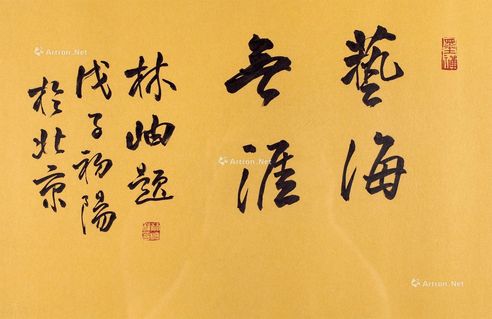 藝海
無涯
林岫題
戊子初陽
於北京
Artron.Net
Artron.Net
Artron.Net